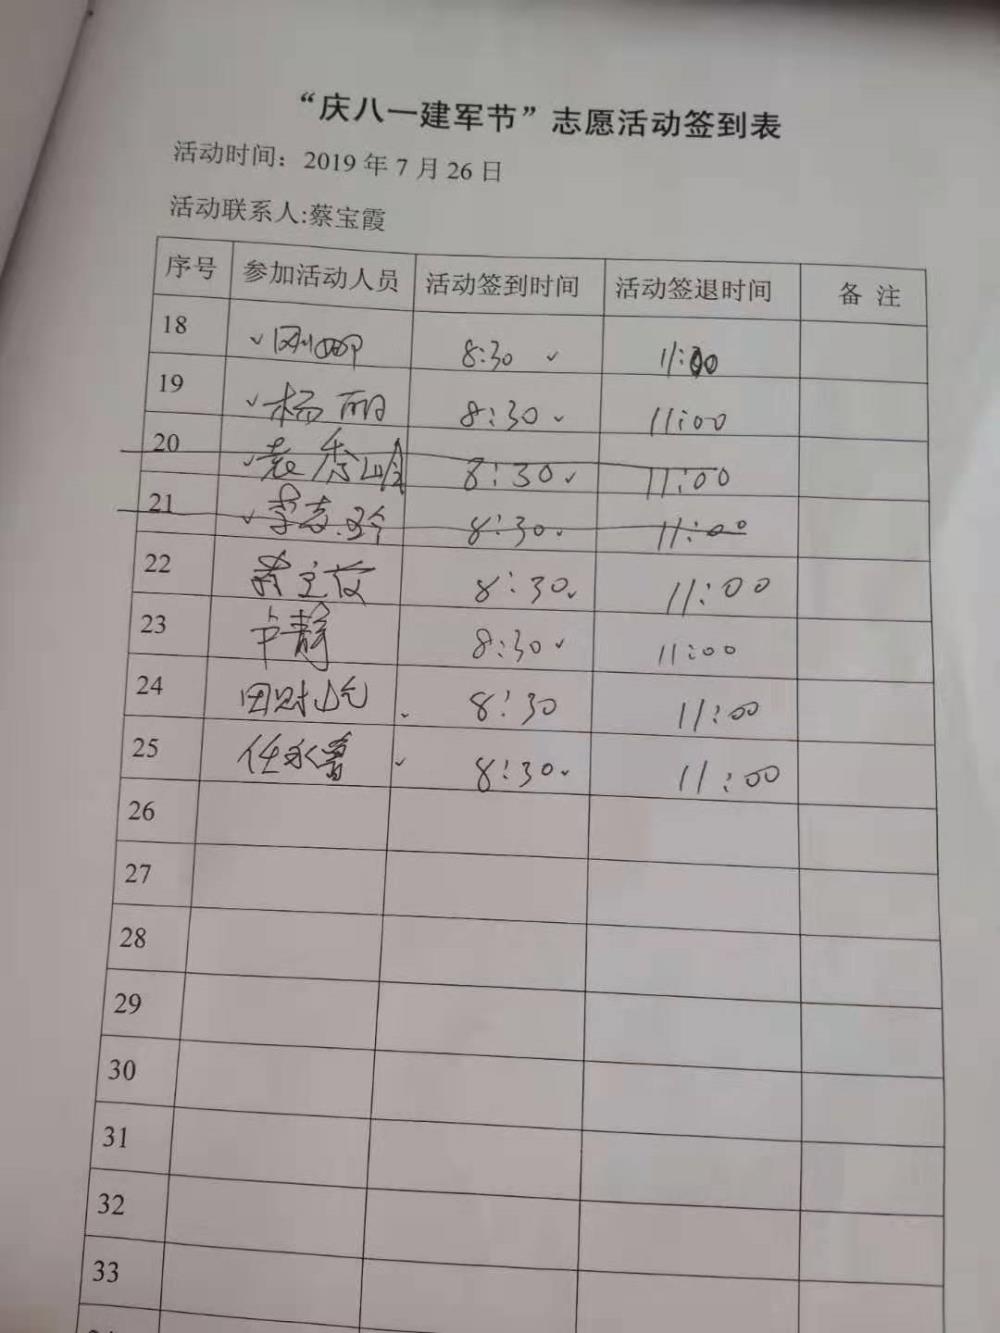 “庆八一建军节”志愿活动签到表
活动时间：2019 年 7 月 26 日
活动联系人:蔡宝霞
序号 参加活动人员 活动签到时间 活动签退时间 备 注
18 8:30 ✓ 11:00
19 ✓杨丽 8:30 ✓ 11:00
20 ✓袁秀 8:30 ✓ 11:00
21 ✓李志玲 8:30 ✓ 11:00
22 8:30 ✓ 11:00
23 卢静 8:30 ✓ 11:00
24 田财 8:30 11:00
25 任永 ✓ 8:30 ✓ 11:00
26
27
28
29
30
31
32
33